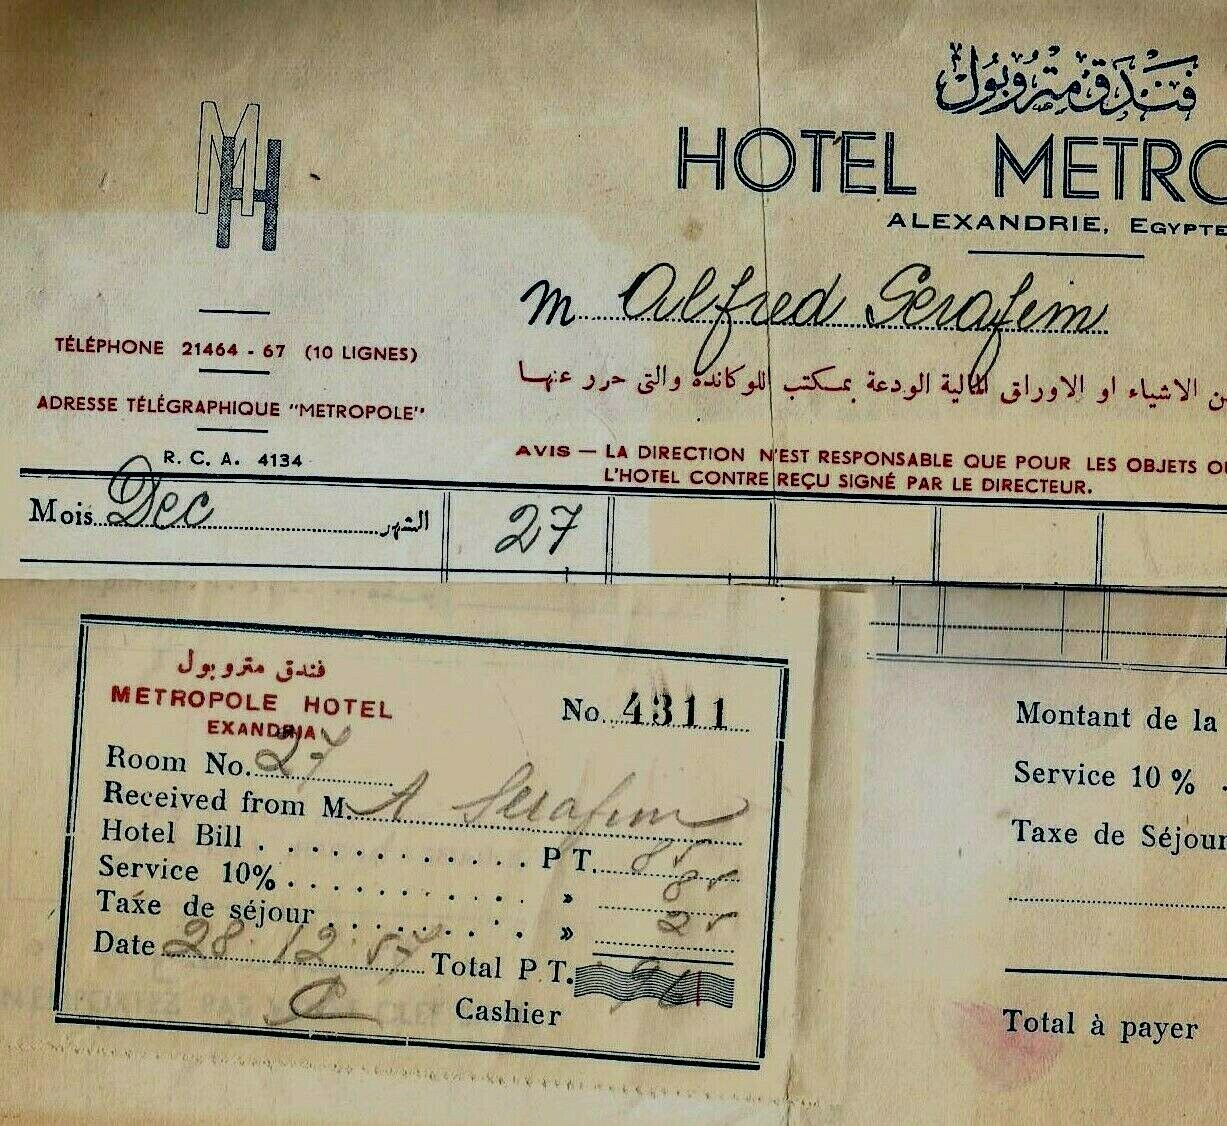 فندق متروبول
HOTEL METRO
ALEXANDRIE, EGYPTE
MH
TÉLÉPHONE 21464 - 67 (10 LIGNES)
ADRESSE TÉLÉGRAPHIQUE "METROPOLE"
R. C. A. 4134
M Alfred Serafim
ن الاشياء او الاوراق المالية الودعة بمكتب اللوكاندة والتى حرر عنها
AVIS — LA DIRECTION N'EST RESPONSABLE QUE POUR LES OBJETS O
L'HOTEL CONTRE REÇU SIGNÉ PAR LE DIRECTEUR.
Mois Dec الشهر 27
فندق متروبول
METROPOLE HOTEL
EXANDRIA
No. 4311
Room No. 27
Received from M. A Serafim
Hotel Bill P T. 85
Service 10% » 85
Taxe de séjour » 25
Date 28 12 57 Total P T.
Cashier
Montant de la
Service 10 %
Taxe de Séjour
Total à payer